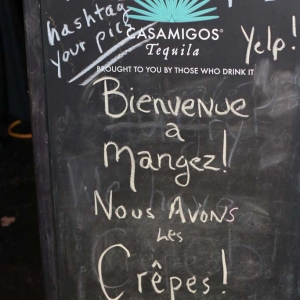 hashtag
your pics
Yelp!
CASAMIGOS®
Tequila
BROUGHT TO YOU BY THOSE WHO DRINK IT
Bienvenue
à
Mangez!
Nous Avons
Les
Crêpes!